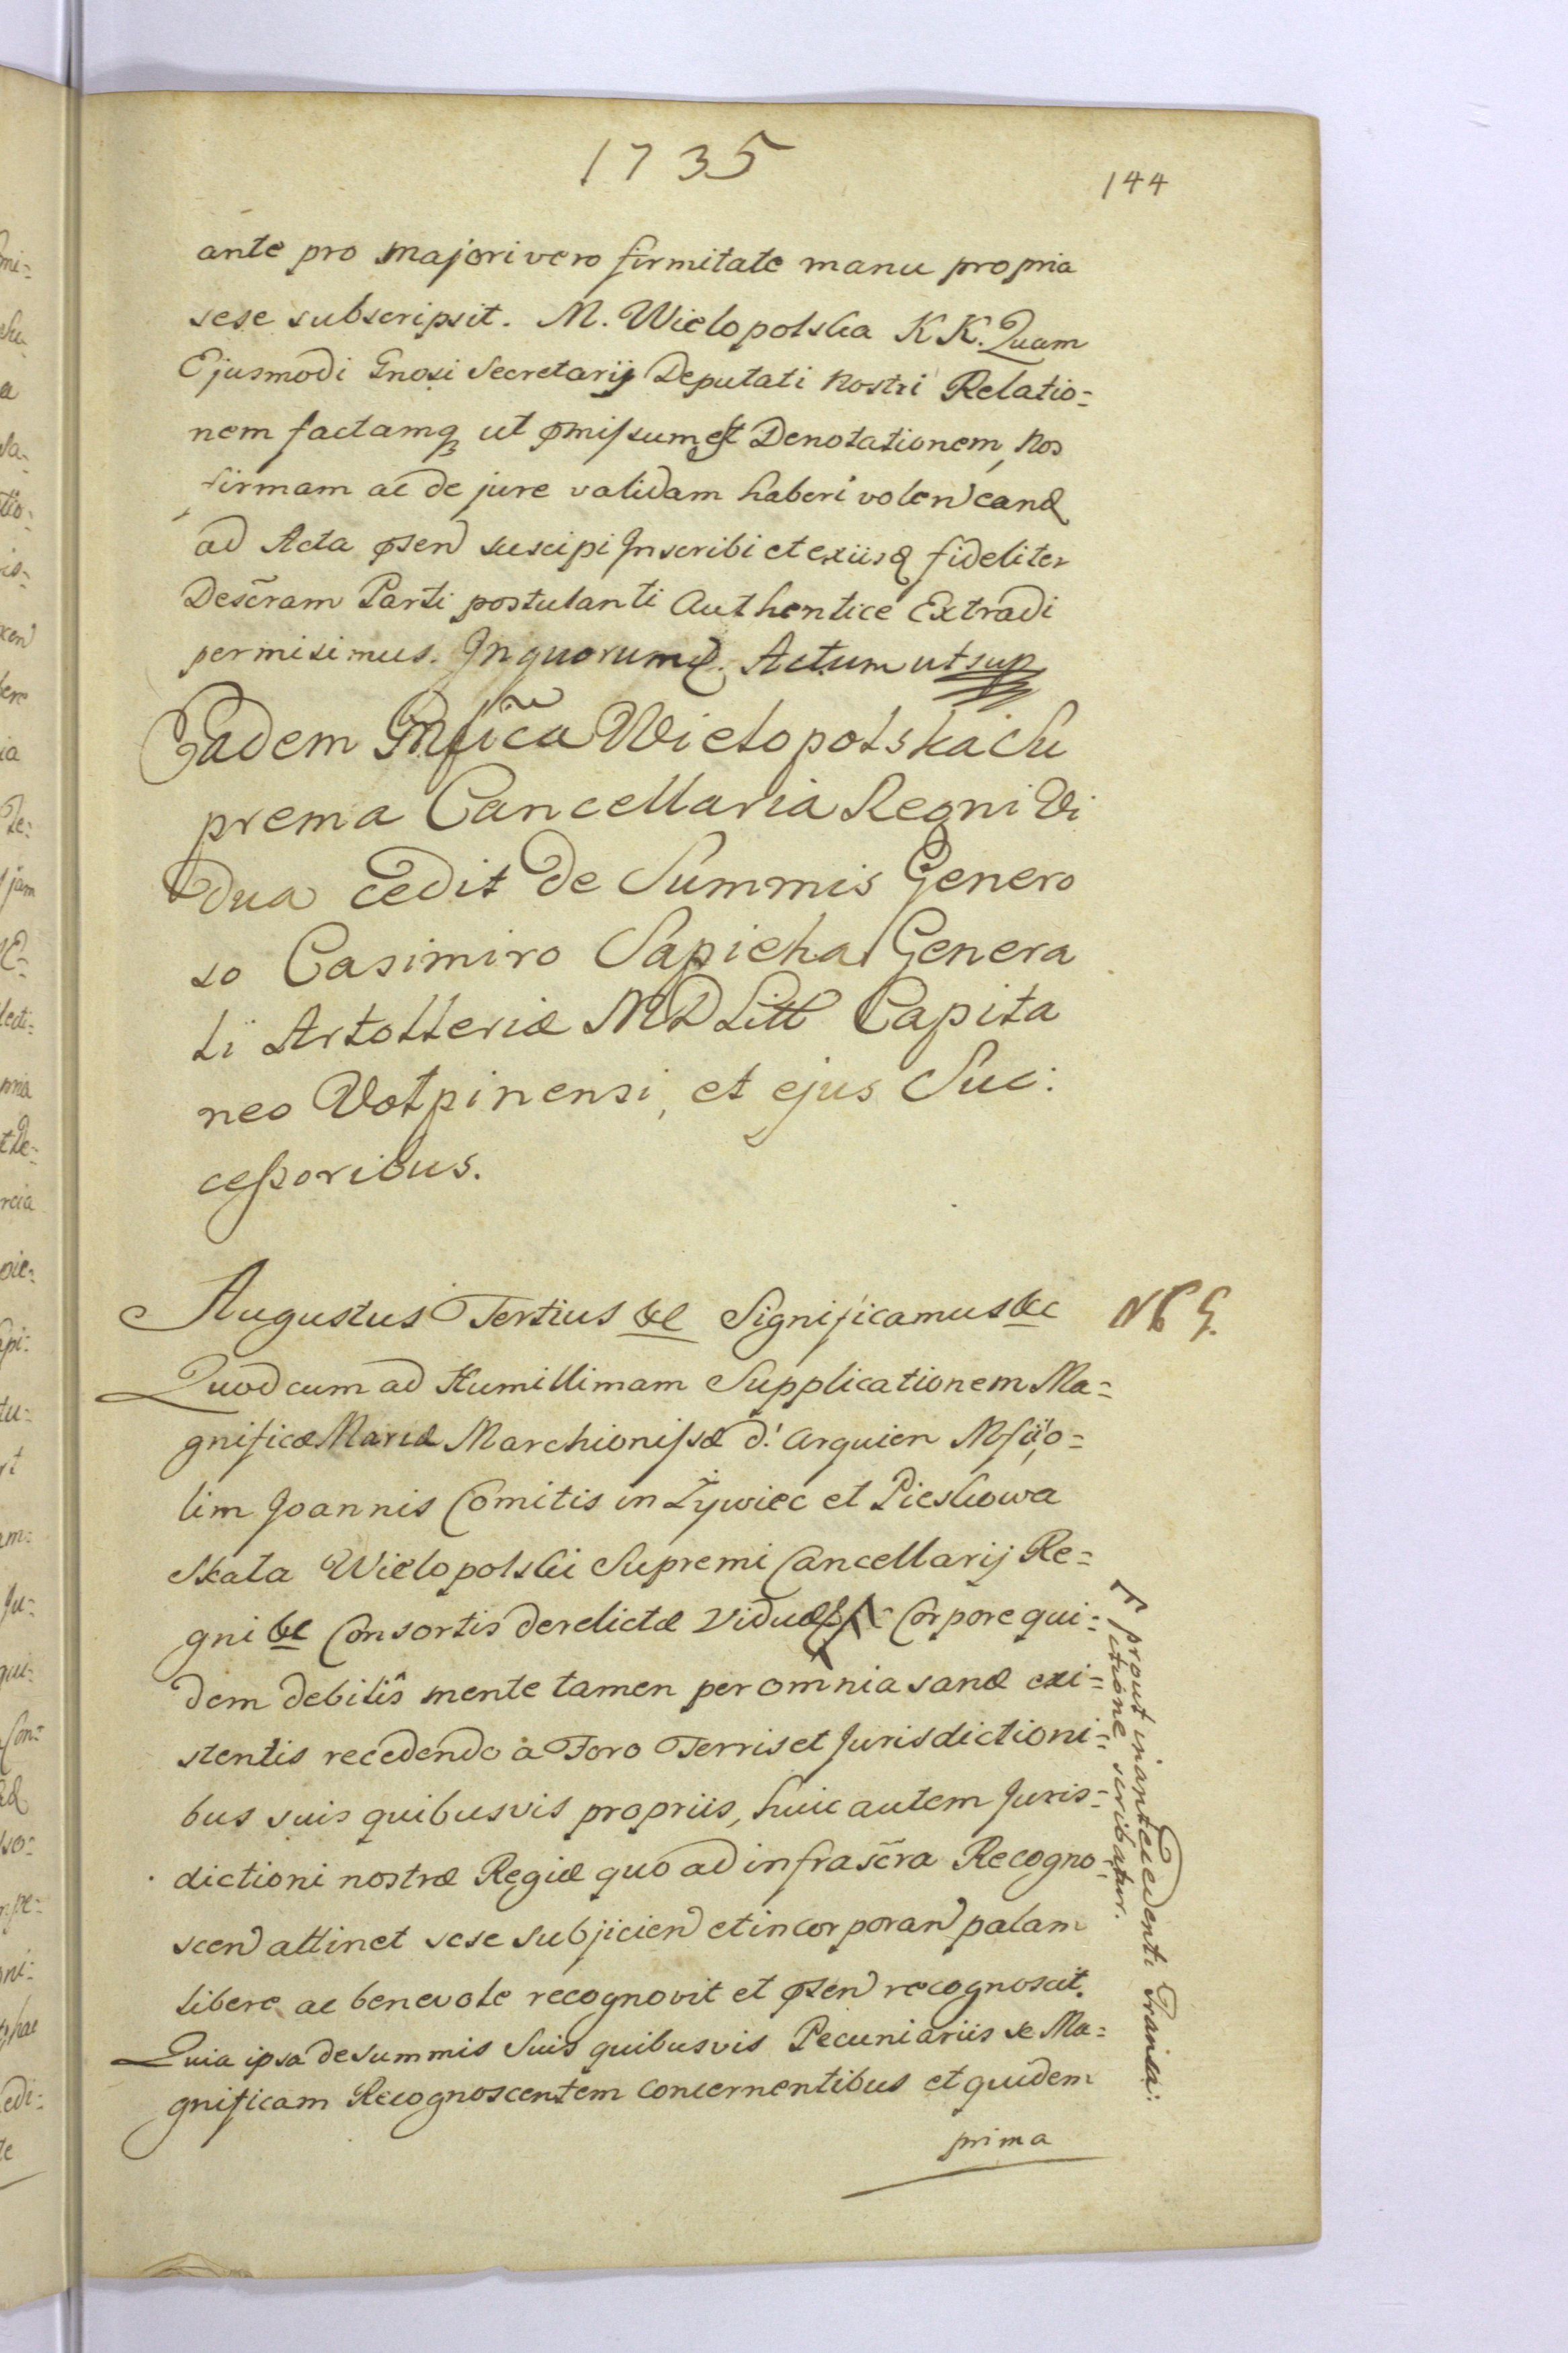 1735
144
ante pro majori vero firmitate manu propria
sese subscripsit. M. Wielopolska KK. Quam
Ejusmodi Gnosi Secretarij Deputati Nostri Relatio=
nem factamq ut pmissum est Denotationem, Nos
firmam ac de jure validam haberi volen eand
ad Acta psen suscipi Inscribi et exiisd fideliter
Descram Parti postulanti Authentice Extradi
permisimus. In quorum &. Actum ut sup
Eadem Mfica Wielopolska Su
prema Cancellaria Regni Vi
dua cedit de Summis Genero
so Casimiro Sapieha Genera
li Artolleriæ MD Litt Capita
neo Wolpinensi, et ejus Suc:
cessoribus.
Augustus Tertius &c Significamus &c
Quod cum ad Humillimam Supplicationem Ma=
gnificæ Mariæ Marchionissæ d'. Arquien Mfii, o=
lim Joannis Comitis in Żywiec et Pieskowa
Skała Wielopolski Supremi Cancellarij Re=
gni &c Consortis derelictæ Viduæ Corpore qui=
dem debilis mente tamen per omnia sanæ exi=
stentis recedendo à Foro Terris et Jurisdictioni=
bus suis quibusvis propriis, huic autem Juris=
dictioni nostræ Regiæ quo ad infrascra Recogno=
scen attinet sese subjicien et incorporan palam
libere ac benevole recognovit et psen recognoscit.
Quia ipsa de summis Suis quibusvis Pecuniariis se Ma=
gnificam Recognoscentem concernentibus et quidem
prima
prout in antecedenti Transa:
ctione scribatur.